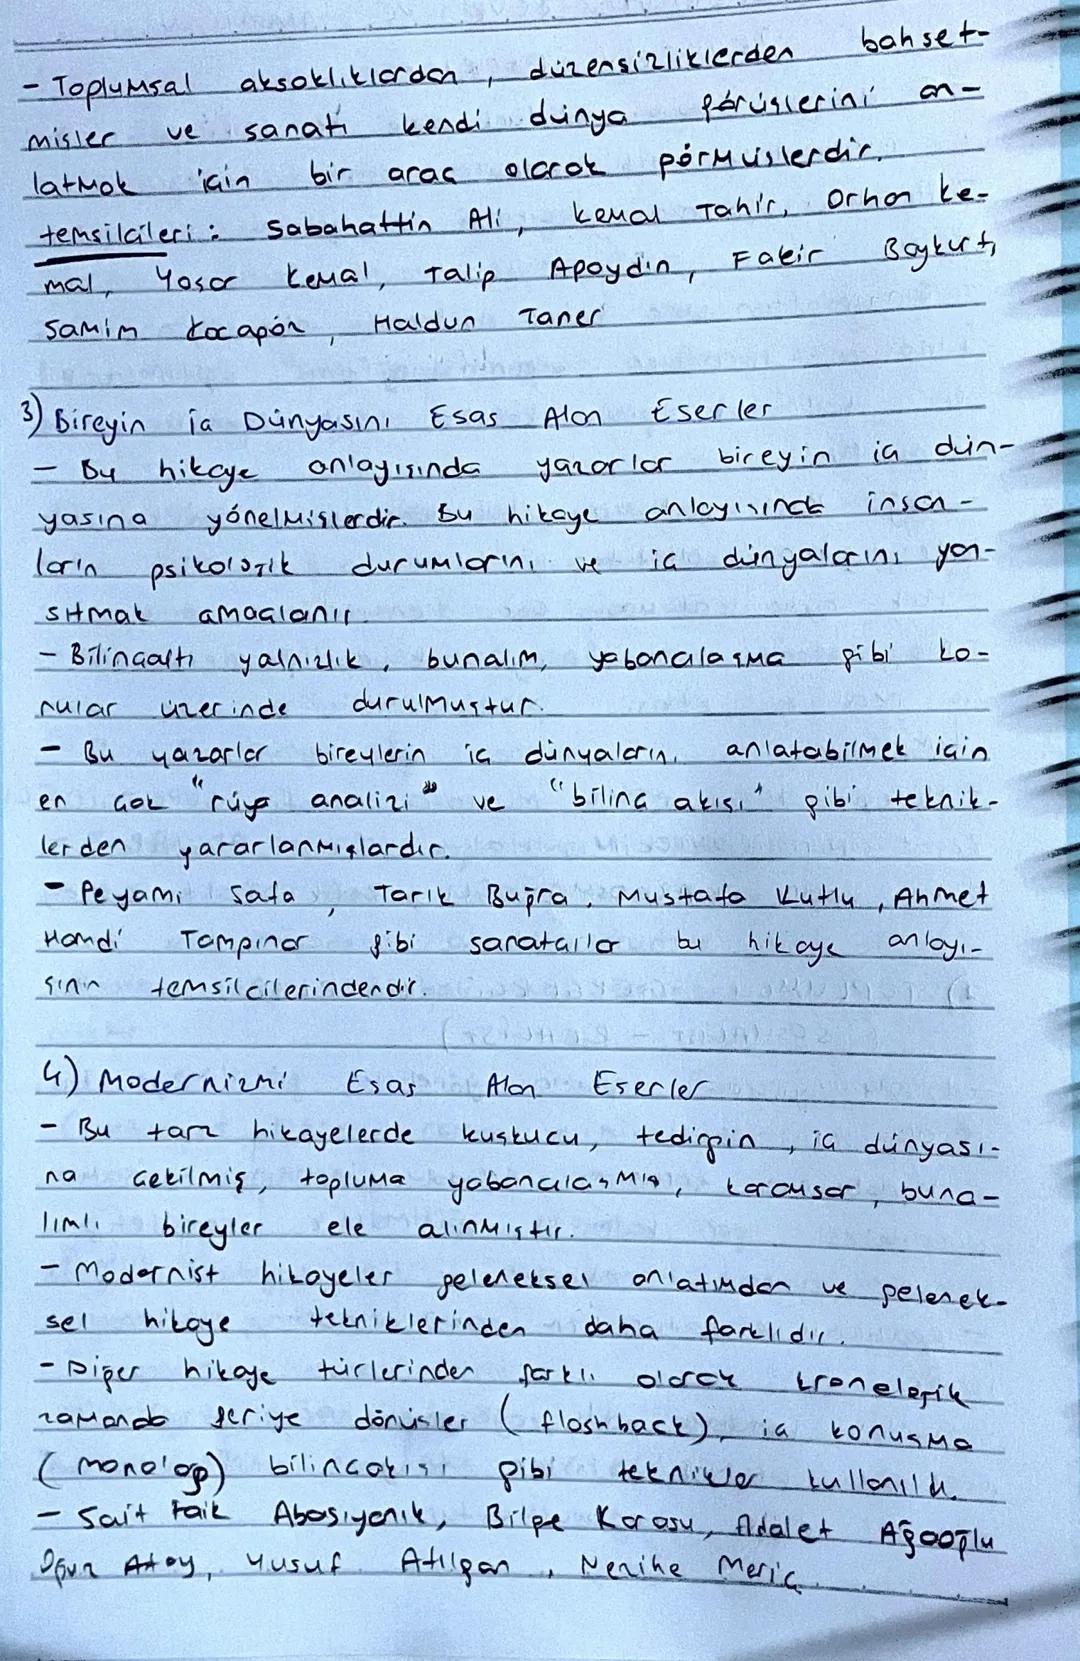 - Toplumsal aksaklıklardan, düzensizliklerden bahset-
mişler ve sanatı kendi dünya görüşlerini an-
latmak için bir araç olarak görmüşlerdir.
temsilcileri: Sabahattin Ali, Kemal Tahir, Orhan Ke-
mal, Yaşar Kemal, Talip Apaydın, Fakir Baykurt,
Samim Kocagöz, Haldun Taner
3) Bireyin İç Dünyasını Esas Alan Eserler
- Bu hikaye anlayışında yazarlar bireyin iç dün-
yasına yönelmişlerdir. Bu hikaye anlayışında insan-
ların psikolojik durumlarını ve iç dünyalarını yan-
sıtmak amaçlanır.
- Bilinçaltı yalnızlık, bunalım, yabancılaşma gibi ko-
nular üzerinde durulmuştur.
- Bu yazarlar bireylerin iç dünyaların. anlatabilmek için
en çok "rüya analizi" ve "bilinç akışı" gibi teknik-
lerden yararlanmışlardır.
- Peyami Safa, Tarık Buğra, Mustafa Kutlu, Ahmet
Hamdi Tampınar gibi sanatçılar bu hikaye anlayı-
şının temsilcilerindendir.
4) Modernizmi Esas Alan Eserler
- Bu tarz hikayelerde kuşkucu, tedirgin, iç dünyası-
na çekilmiş, topluma yabancılaşmış, karamsar, buna-
lımlı bireyler ele alınmıştır.
- Modernist hikayeler geleneksel anlatımdan ve gelenek-
sel hikaye tekniklerinden daha farklıdır.
- Diğer hikaye türlerinden farklı olarak kronolojik
zamanda geriye dönüşler (flashback), iç konuşma
(monolog) bilinçakışı gibi teknikler kullanılır.
- Sait Faik Abasıyanık, Bilge Karasu, Adalet Ağaoğlu
Oğuz Atay, Yusuf Atılgan, Nezihe Meriç